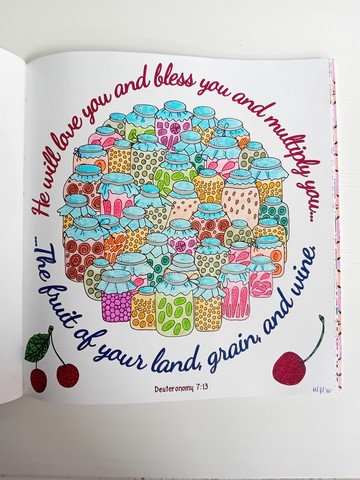 He will love you and bless you and multiply you...
...The fruit of your land, grain, and wine.
Deuteronomy 7:13